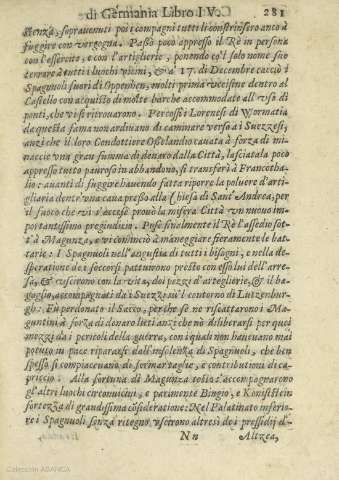 di Germania Libro IV. 281
stenza, soprauenuti poi i compagni tutti li constrinsero anco à
fuggire con vergogna. Passò poco appresso il Rè in persona
con l'essercito, e con l'artiglierie, ponendo co'l solo nome suo
terrore à tutti i luochi vicini, & a' 17. di Decembre cacciò i
Spagnuoli fuori di Oppenhen, molti prima vccisine dentro al
Castello con acquisto di molte barche accommodate all'vso di
ponti, che vi si ritrouarono. Percossi i Lorenesi di Wormatia
da questa fama non ardirono di caminare verso a i Suezzesi,
anzi che il loro Condottiero Ossalando cauata à forza di mi-
naccie vna gran summa di denaro dalla Città, lasciatala poco
appresso tutto pauroso in abbandono, si transferì à Francotha-
lio: auanti di fuggire hauendo fatta riporre la poluere d'arti-
gliaria dentr'vna caua presso alla Chiesa di Sant'Andrea, per
il fuoco che vi s'accese prouò la misera Città vn nuouo im-
portantissimo pregiudicio. Pose finalmente il Rè l'assedio sot-
t'à Magunza, e vi cominciò à maneggiare fieramente le bat-
tarie: I Spagnuoli nell'angustia di tutti i bisogni, e nella de-
speratione de i soccorsi pattuirono presto con esso lui dell'arre-
sa, & vscirono con la vita, doi pezzi d'artegliarie, & il ba-
gaglio, accompagnati da i Suezzesi sù'l contorno di Lutzenburg-
gh: Fù perdonato il Sacco, perche se ne riscattarono i Ma-
guntini à forza di denaro lieti anzi che nò di liberarsi per quei
mezzi da i pericoli della guerra, con i quali non haueuano mai
potuto in pace ripararsi dall'insolenza di Spagnuoli, che ben
spesso si compiaceuano di formar taglie, e contributioni di ca-
priccio: Alla fortuna di Magunza tosto s'accompagnarono
gl'altri luochi circonuicini, e parimente Bingio, e Konistein
fortezza di grandissima cõsideratione: Nel Palatinato inferio-
re i Spagnuoli senza ritegno vscirono altresì dei pressidij d'-
Nn Altzea,
Colección ABANCA